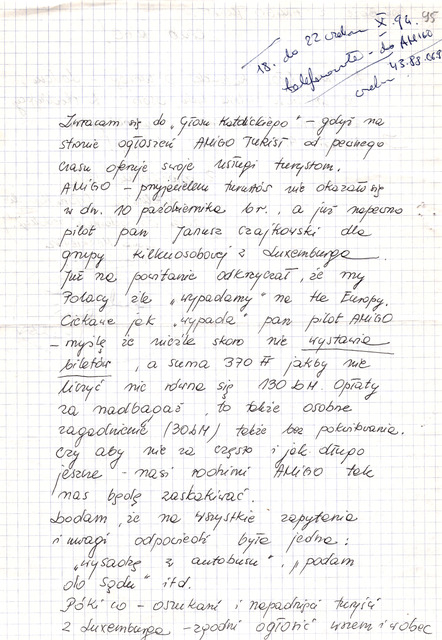 95
18. do 22 X. 94.
telefonowałe - do AMIGO
43.83.069
Zwracam się do „Głosu Katolickiego" – gdyż na
stronie ogłoszeń AMIGO TURIST od pewnego
czasu oferuje swoje usługi turystom.
AMIGO – przyjacielem turystów nie okazał się
w dn. 10 października br., a już napewno
pilot pan Janusz Czajkowski dla
grupy kilkuosobowej z Luxemburga.
Już na powitanie odkrzyczał, że my
Polacy źle „wypadamy" na tle Europy.
Ciekawe jak „wypada" pan pilot AMIGO
– myślę że nieźle skoro nie wystawia
biletów, a suma 370 FF jakby nie
liczyć nie równa się 130 DM. Opłaty
za nadbagaż, to także osobne
zagadnienie (30 DM) także bez pokwitowania.
Czy aby nie za często i jak długo
jeszcze – nasi rodzimi AMIGO tak
nas będą zaskakiwać.
Dodam, że na wszystkie zapytania
i uwagi odpowiedź była jedna:
„wysadzę z autobusu", „podam
do sądu" itd.
Póki co – oszukani i napadnięci turyści
z Luxemburga – zgodni ogłosić wszem i wobec